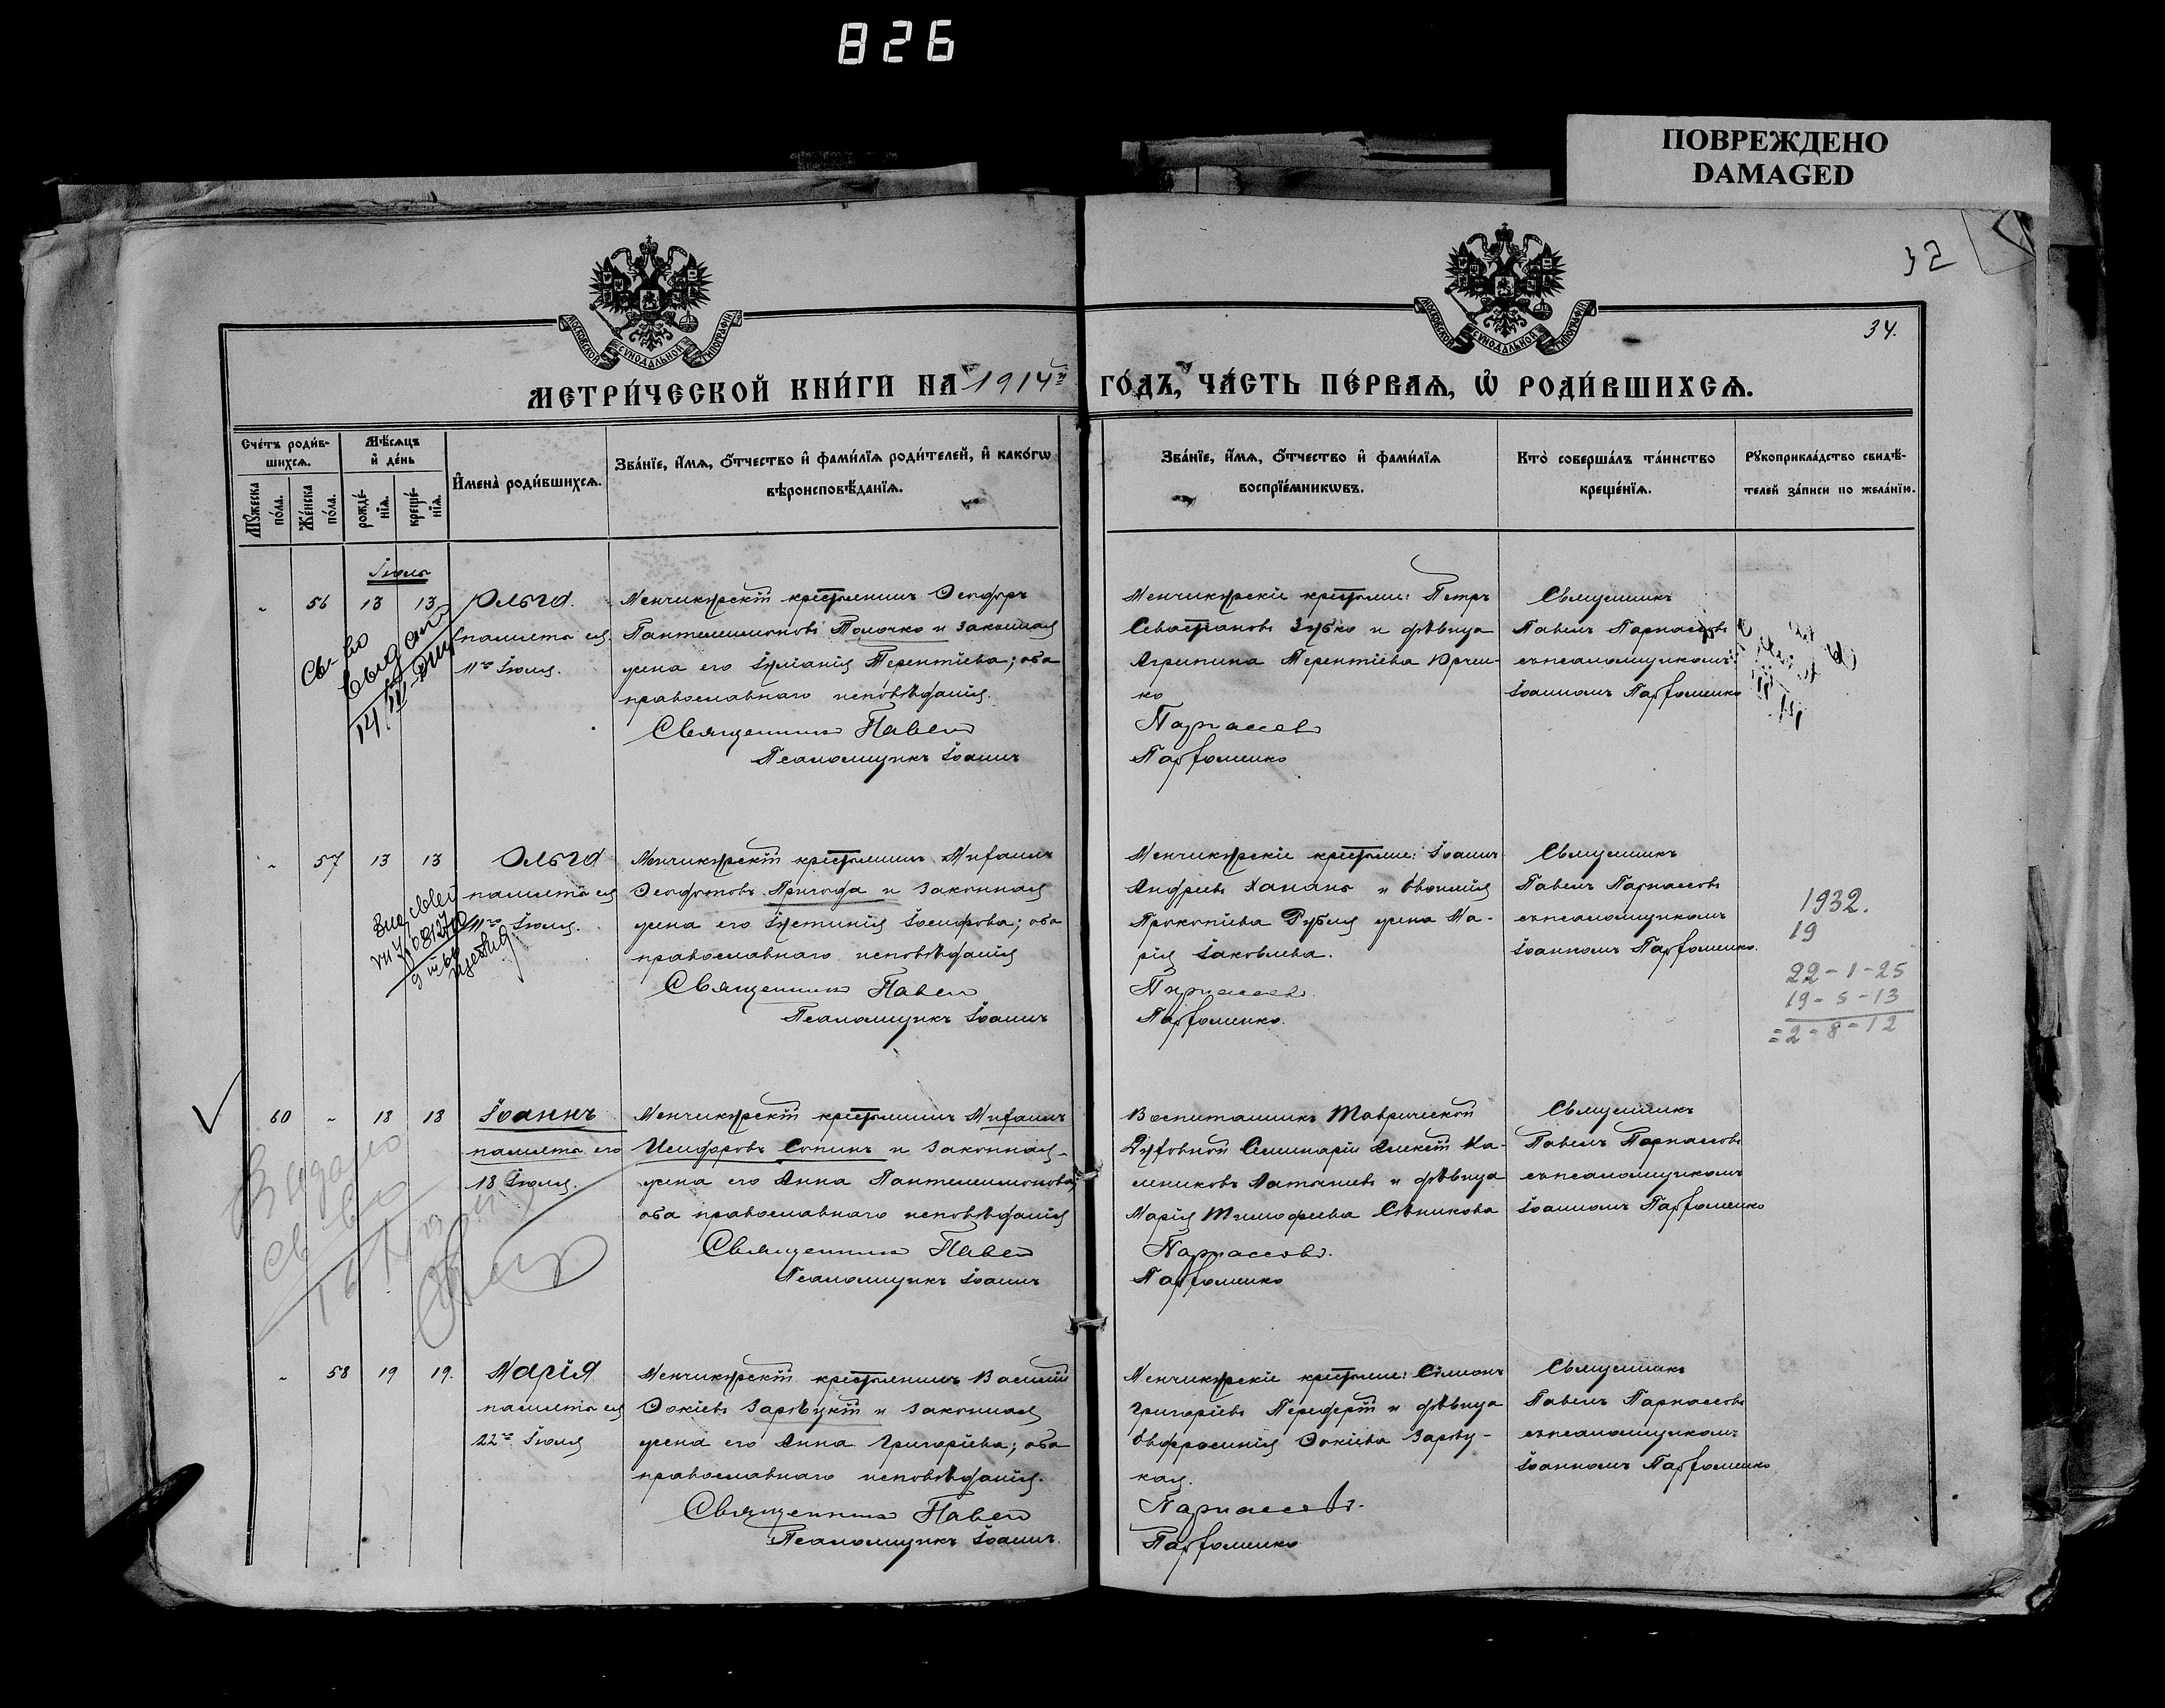 826
ПОВРЕЖДЕНО
DAMAGED
32
34.
МОСКОВСКОЙ СѴНОДАЛЬНОЙ ТИПОГРАФІИ
МОСКОВСКОЙ СѴНОДАЛЬНОЙ ТИПОГРАФІИ
МЕТРИ́ЧЕСКОЙ КНИ́ГИ НА 1914й ГО́ДЪ, ЧА́СТЬ ПЕ́РВАѦ, Ѡ҆ РОДИ́ВШИХСѦ.
Сче́тъ роди́в-
шихсѧ.
Мꙋ́жеска по́ла.
Же́нска по́ла.
Мѣ́сѧцъ
и҆ де́нь
рожде́-
нїѧ.
креще́-
нїѧ.
И҆мена̀ роди́вшихсѧ.
Зва́нїе, и҆́мѧ, ѻ҆́тчество и҆ фами́лїѧ роди́телей, и҆ како́гѡ
вѣроисповѣ́данїѧ.
Зва́нїе, и҆́мѧ, ѻ҆́тчество и҆ фами́лїѧ
воспрїе́мникѡвъ.
Кто̀ соверша́лъ та́инство
креще́нїѧ.
Рꙋкоприкла́дство свидѣ́-
телей за́писи по жела́нїю.
Іюль
- 56 13 13
Ольга.
память ея
11го Іюля.
Св-во
выдано
14/IV
Менчикурскій крестьянинъ Ѳеодоръ
Пантелеимоновъ Толочко и законная
жена его Іуліанія Терентіева; оба
православнаго исповѣданія.
Священникъ Павелъ
Псаломщикъ Іоаннъ
Менчикурскіе крестьяне: Петръ
Севастіановъ Зубко и дѣвица
Агрипина Терентіева
ко
Парнассовъ
Парфоменко
Священникъ
Павелъ Парнассовъ
съ псаломщикомъ
Іоанномъ Парфоменко
- 57 13 13
Ольга
память ея
11го Іюля.
Менчикурскій крестьянинъ Михаилъ
Ѳеодотовъ Пригода и законная
жена его Іустинія Іосифова; оба
православнаго исповѣданія
Священникъ Павелъ
Псаломщикъ Іоаннъ
Менчикурскіе крестьяне: Іоаннъ
Андреевъ и Евфимія
Прокопіева жена Ма-
рія Іаковлева.
Парнассовъ.
Парфоменко.
Священникъ
Павелъ Парнассовъ
съ псаломщикомъ
Іоанномъ Парфоменко.
1932.
19
22-1-25
19-5-13
=2-8-12
60 - 18 18
Іоаннъ
память его
18 Іюля.
Выдано
св-во
Менчикурскій крестьянинъ Михаилъ
Исидоровъ Сопинъ и законная
жена его Анна Пантелеимонова;
оба православнаго исповѣданія
Священникъ Павелъ
Псаломщикъ Іоаннъ
Воспитанникъ Таврической
Духовной Семинаріи Алексій Ка-
лениковъ и дѣвица
Марія Тимофеева
Парнассовъ.
Парфоменко
Священникъ
Павелъ Парнассовъ
съ псаломщикомъ
Іоанномъ Парфоменко
- 58 19 19.
Марія
память ея
22го Іюля
Менчикурскій крестьянинъ Василій
Ѳокіевъ Зарѣцкій и законная
жена его Анна Григоріева; оба
православнаго исповѣданія.
Священникъ Павелъ
Псаломщикъ Іоаннъ.
Менчикурскіе крестьяне: Симеонъ
Григоріевъ и дѣвица
Евфросинія Ѳокіева Зарѣц-
кая.
Парнассовъ.
Парфоменко
Священникъ
Павелъ Парнассовъ
съ псаломщикомъ
Іоанномъ Парфоменко